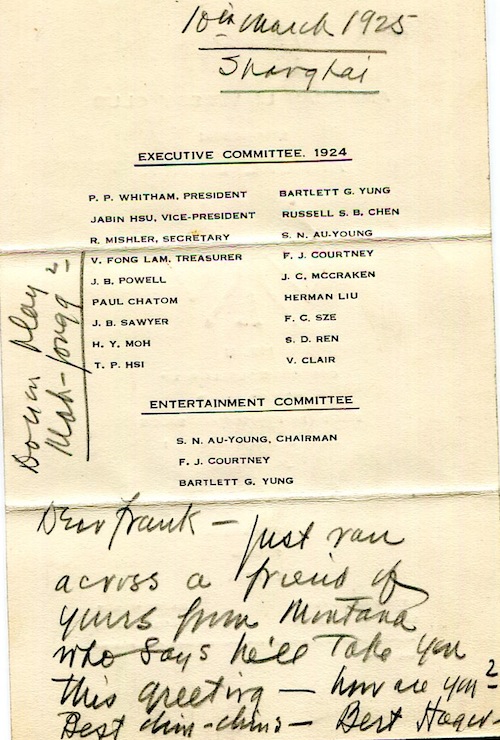 10th March 1925
Shanghai
EXECUTIVE COMMITTEE, 1924
P. P. WHITHAM, PRESIDENT
JABIN HSU, VICE-PRESIDENT
R. MISHLER, SECRETARY
V. FONG LAM, TREASURER
J. B. POWELL
PAUL CHATOM
J. B. SAWYER
H. Y. MOH
T. P. HSI
BARTLETT G. YUNG
RUSSELL S. B. CHEN
S. N. AU-YOUNG
F. J. COURTNEY
J. C. MCCRAKEN
HERMAN LIU
F. C. SZE
S. D. REN
V. CLAIR
Do you play
Mah-jongg?
ENTERTAINMENT COMMITTEE
S. N. AU-YOUNG, CHAIRMAN
F. J. COURTNEY
BARTLETT G. YUNG
Dear Frank - just ran
across a friend of
yours from Montana
who says he'll take you
this greeting - how are you?
Best chin-chins - Bert